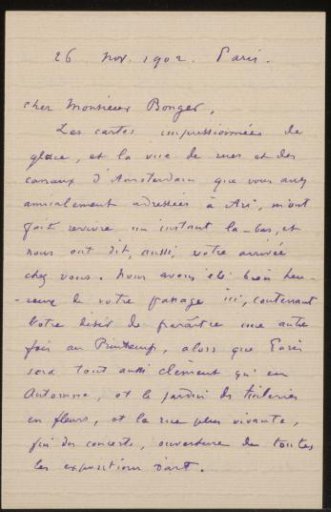 26 nov. 1902. Paris.
Cher Monsieur Bonger,
Les cartes impressionnées de
glace, et la vue de rues et des
canaux d'Amsterdam que vous avez
amicalement adressées à Arï, m'ont
fait revivre un instant là-bas, et
nous ont dit, aussi, votre arrivée
chez vous. Nous avons été bien heu-
-reux de votre passage ici, contenant
votre désir de paraître une autre
fois au Printemps, alors que Paris
sera tout aussi clément qu'en
Automne, et le jardin des Tuileries
en fleurs, et la rue plus vivante,
fin des concerts, ouverture de toutes
les expositions d'art.